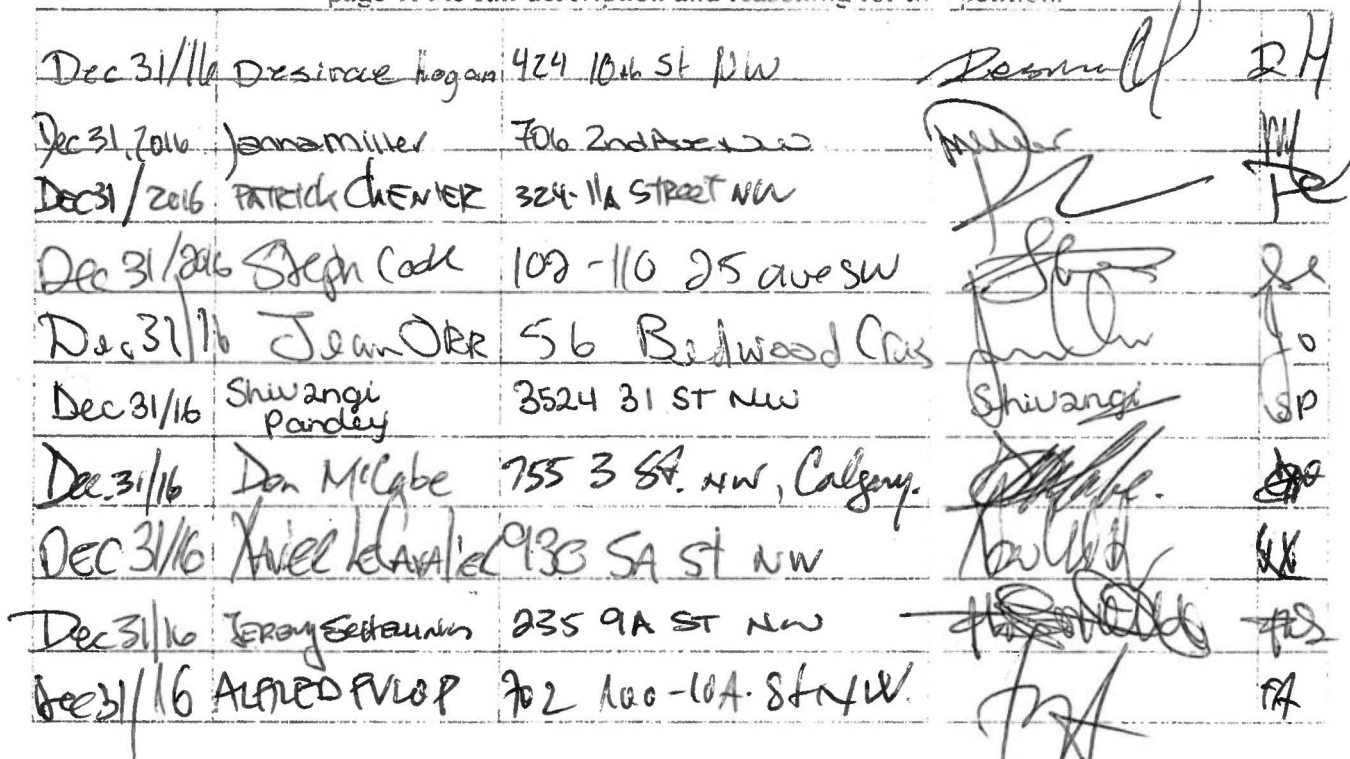 page
Dec 31/16 Desirae hogan 424 10th St NW DH
Dec 31, 2016 Janna Miller 706 2nd Ave NW Miller
Dec 31/2016 PATRICK CHENIER 324-11A STREET NW PC
Dec 31/2016 Steph Cook 102-110 25 ave SW SC
Dec 31/16 Jean ORR 56 Bedwood Cres JO
Dec 31/16 Shivangi Pandey 3524 31 ST NW Shivangi SP
Dec. 31/16 Don McCabe 755 3 St. NW, Calgary.
DEC 31/16 XAVIER LECAVALIER 930 5A St NW
Dec 31/16 JEREMY 235 9A ST NW
Dec 31/16 ALFRED FULOP 702 100-10A. St NW. FA